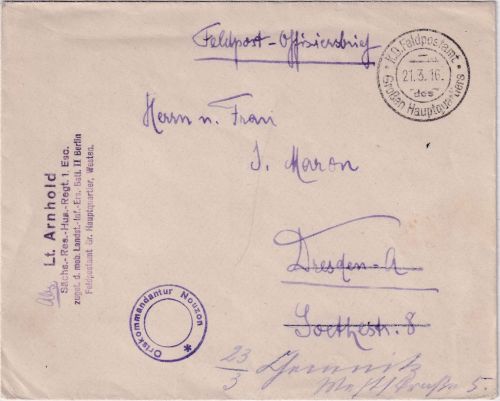 Feldpost-Offiziersbrief
K.D. Feldpostamt
21.3.16.
des
Großen Hauptquartiers
Herrn u. Frau
J. Maron
Dresden-A
Goethestr. 8
23/3 Chemnitz
Weststrasse 5.
Lt. Arnhold
Sächs.-Res.-Hus.-Regt. 1. Esc.
zuget. d. mob. Landst.-Inf.-Ers. Batl. II Berlin
Feldpostamt Gr. Hauptquartier, Westen.
Ortskommandantur Nouzon